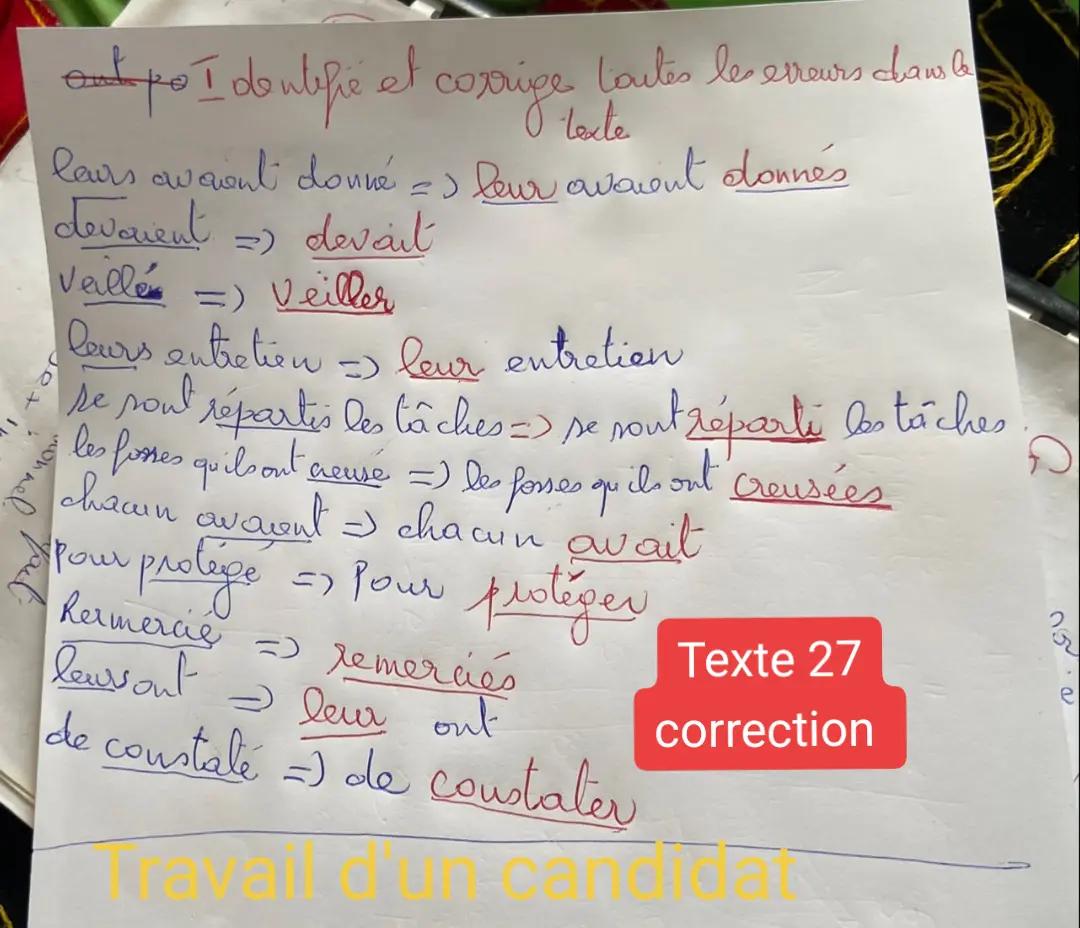 out po Identifié et corrige toutes les erreurs dans le
texte
leurs avaient donné => leur avaient donnés
devaient => devait
veillé => veiller
leurs entretien => leur entretien
se sont répartis les tâches => se sont réparti les tâches
les fosses qu'ils ont creusé => les fosses qu'ils ont creusées
chacun avaient => chacun avait
pour protégé => Pour protéger
Remercié => remerciés
leurs ont => leur ont
de constaté => de constater
Texte 27
correction
Travail d'un candidat